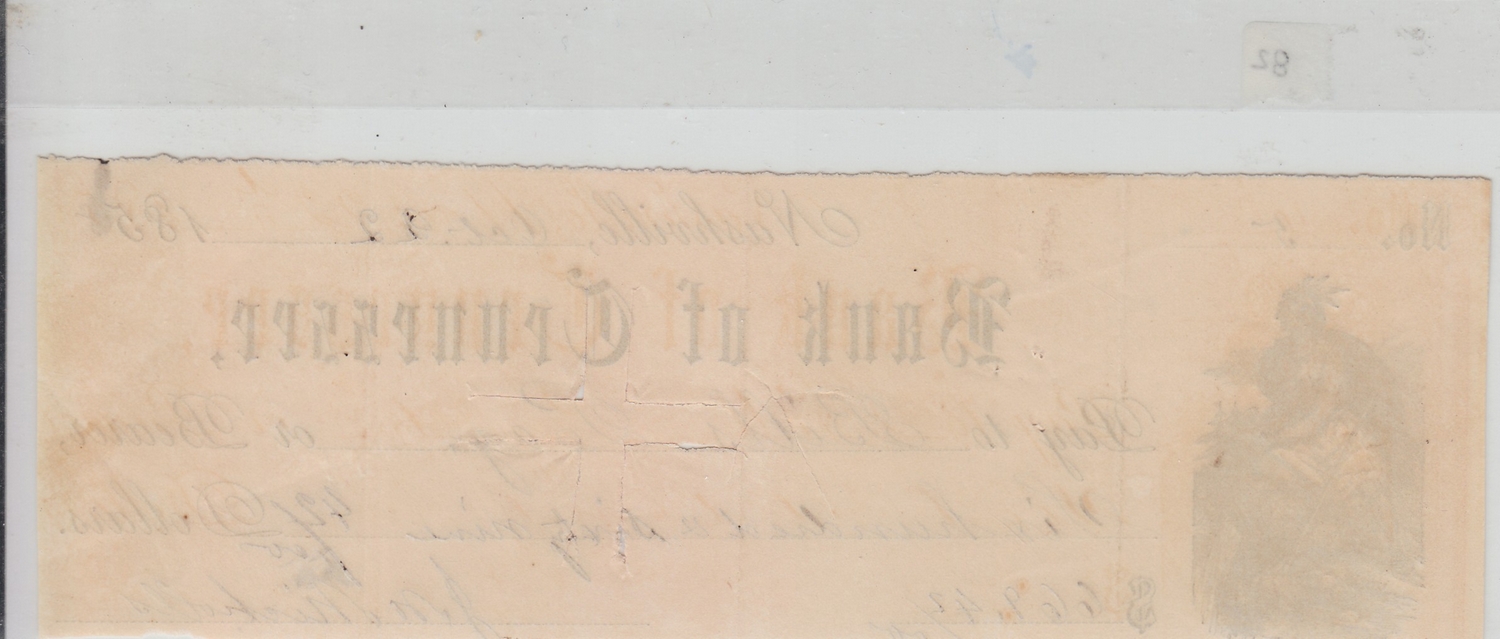 82
No. 5 Nashville, Oct. 22 185
Bank of Tennessee.
Pay to or Bearer,
Six hundred & sixty nine 42/100 Dollars.
$ 669.42/100